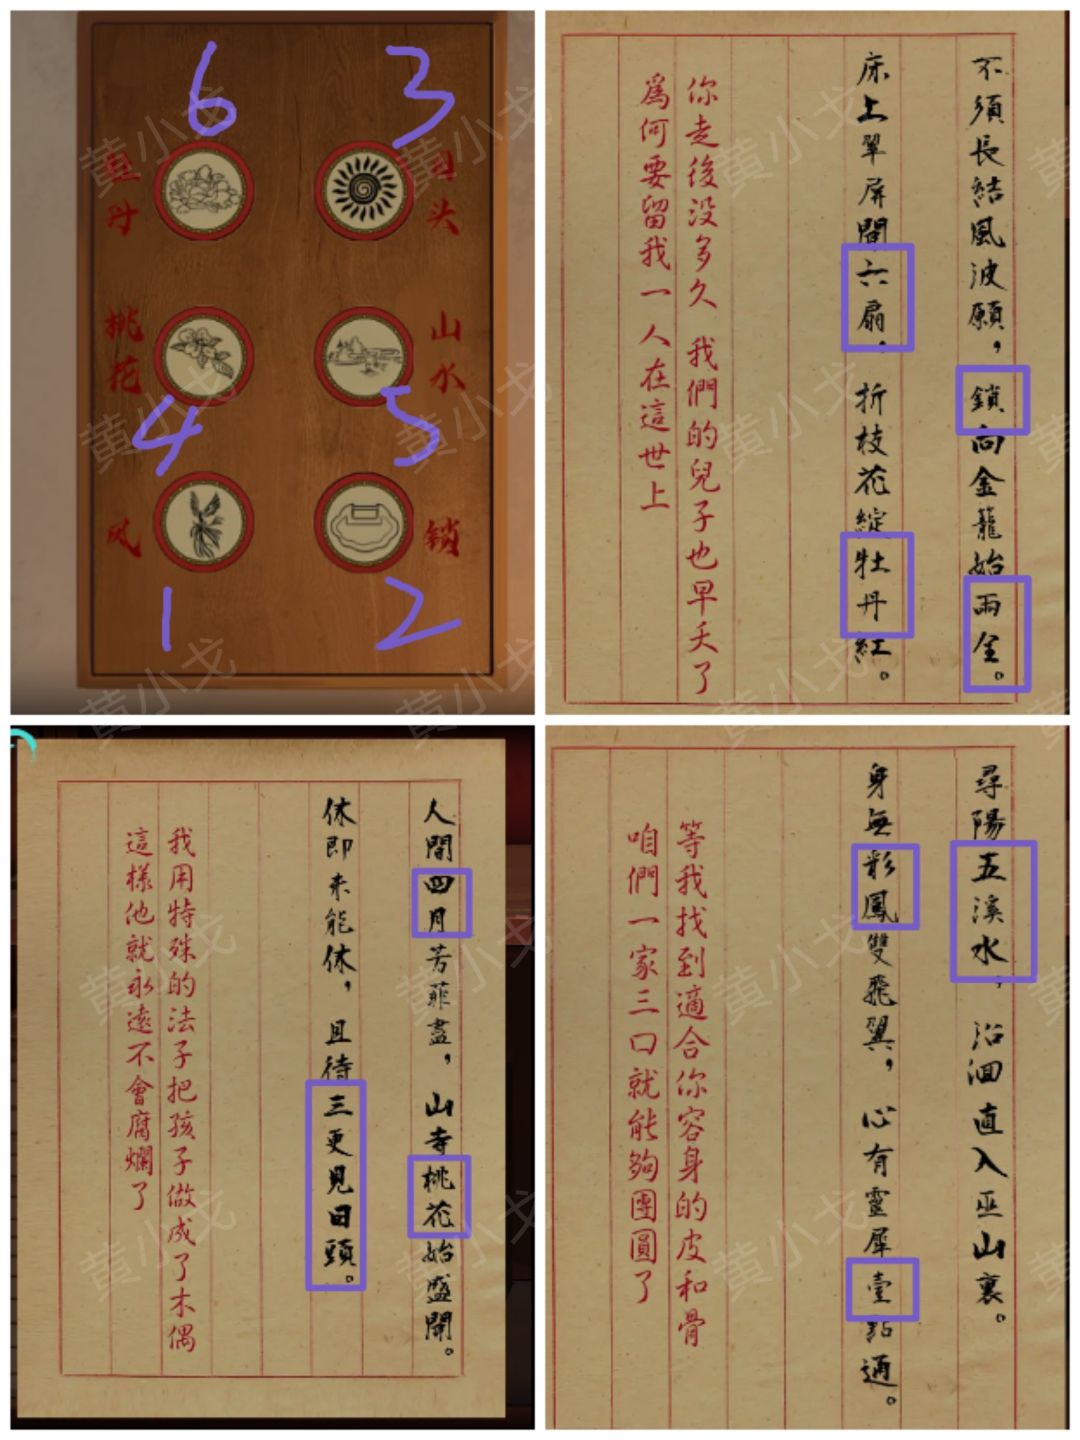 6
3
牡丹
日头
桃花
山水
4
5
风
锁
1
2
不須長結風波願，鎖向金籠始兩全。
床上翠屏開六扇，折枝花綻牡丹紅。
你走後没多久 我們的兒子也早夭了
爲何要留我一人在這世上
人間四月芳菲盡，山寺桃花始盛開。
休即未能休，且待三更見日頭。
我用特殊的法子把孩子做成了木偶
這樣他就永遠不會腐爛了
尋陽五溪水，沿洄直入巫山裏。
身無彩鳳雙飛翼，心有靈犀壹點通。
等我找到適合你容身的皮和骨
咱們一家三口就能夠團圓了
黄小戈